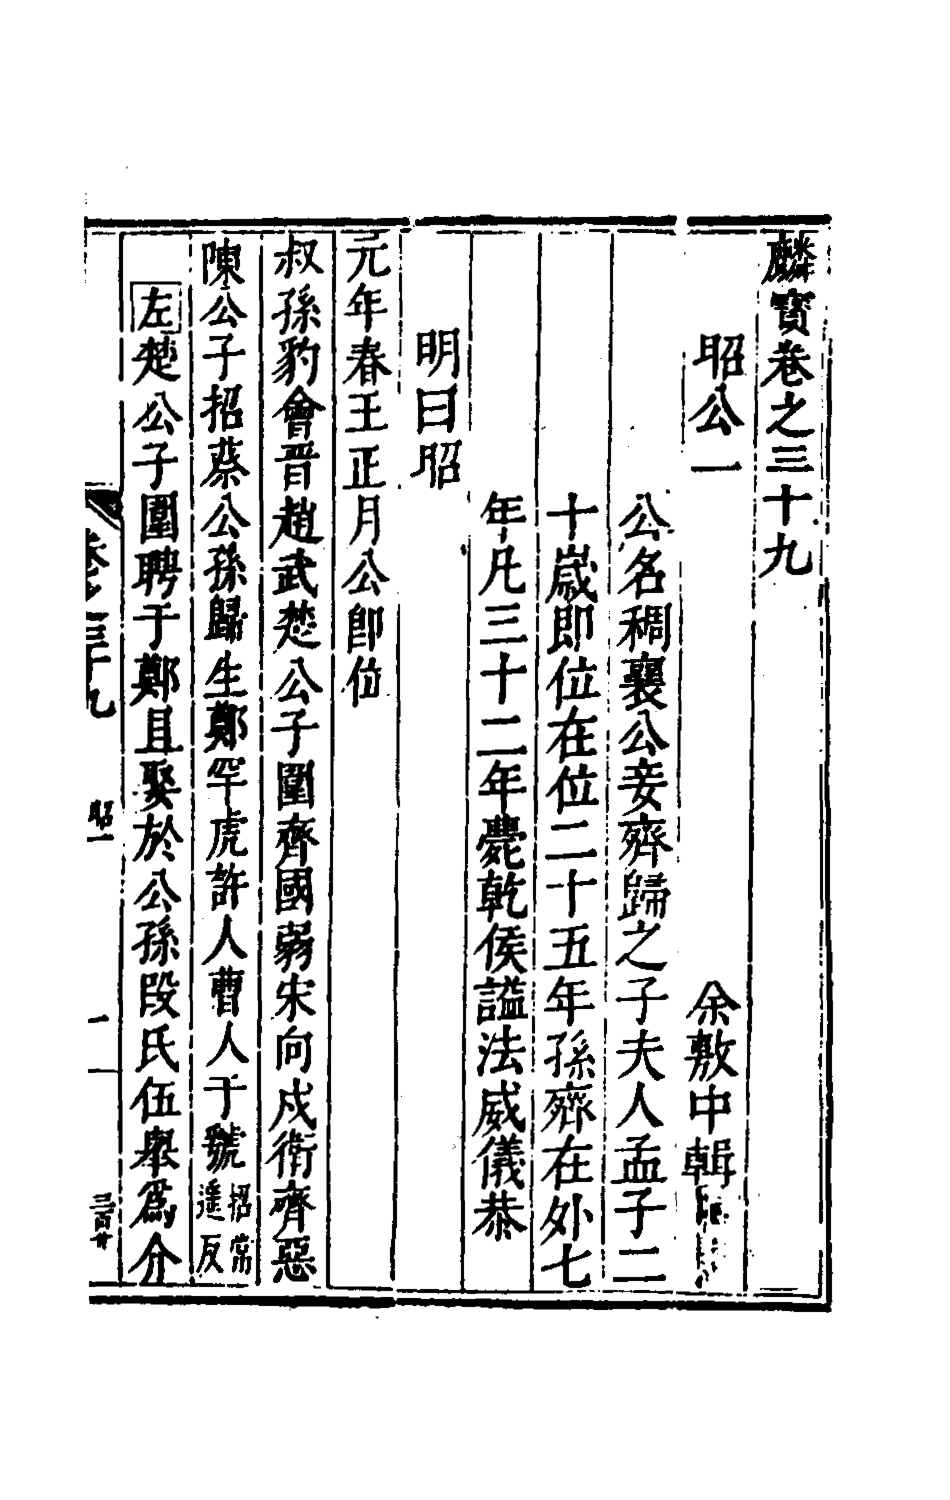 麟寳卷之三十九
昭公一
余敷中輯
公名稠襄公妾齊歸之子夫人孟子二
十嵗即位在位二十五年孫齊在外七
年凡三十二年薨乾侯諡法威儀恭
明曰昭
元年春王正月公卽位
叔孫豹會晉趙武楚公子圍齊國弱宋向戍衛齊惡
陳公子招蔡公孫歸生鄭罕虎許人曹人于虢招常
遥反
左楚公子圍聘于鄭且娶於公孫段氏伍舉爲介
卷之三十九 昭一 一 三百廿